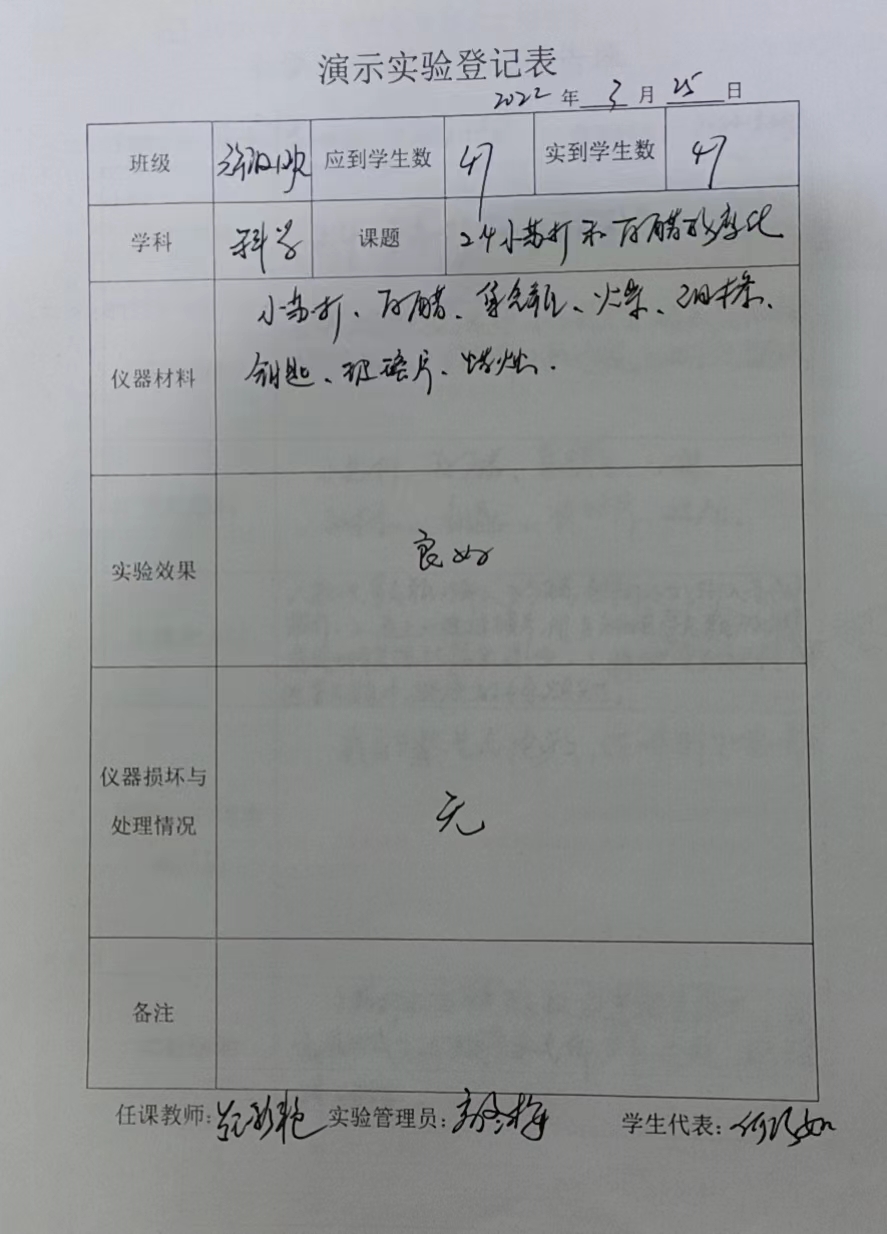 演示实验登记表
2022年3月25日
班级 应到学生数 47 实到学生数 47
学科 科学 课题 2.4小苏打和白醋的变化
仪器材料 小苏打、白醋、火柴、
钥匙、玻璃片、蜡烛.
实验效果 良好
仪器损坏与
处理情况 无
备注
任课教师: 实验管理员: 学生代表: